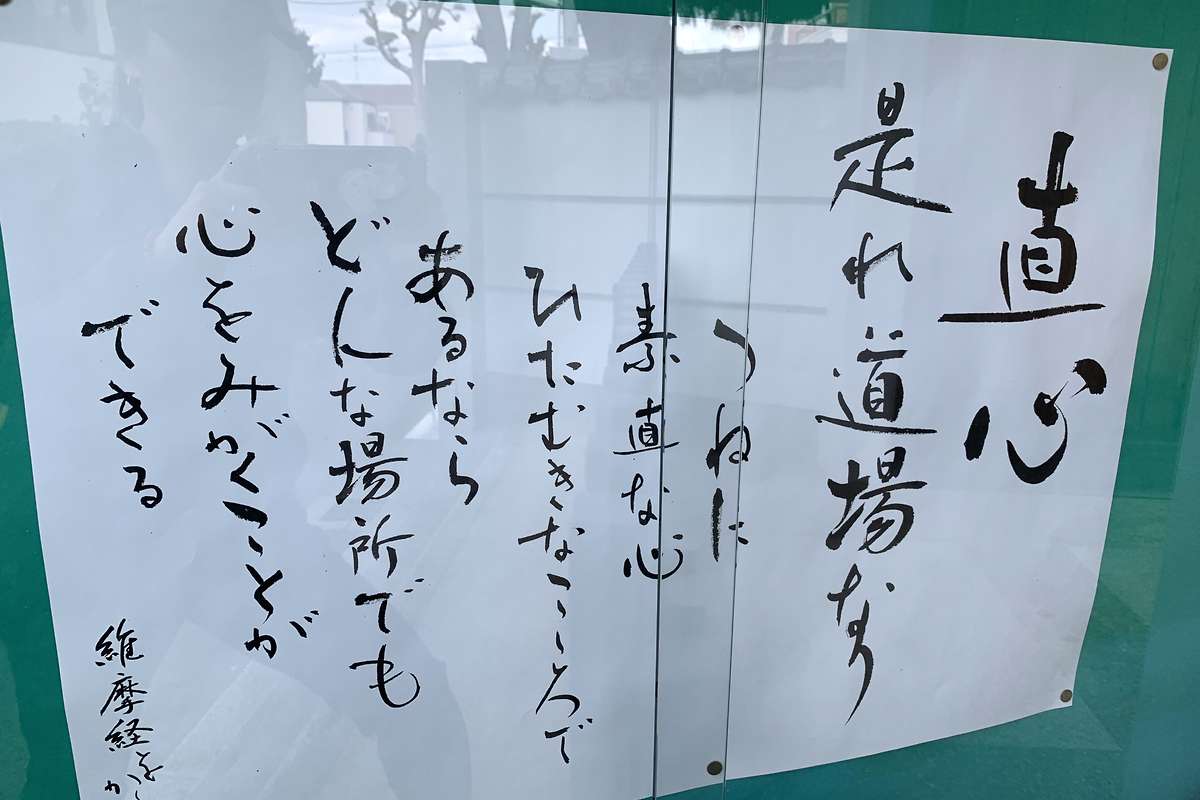 直心
是れ道場なり
つねに
素直な心
ひたむきなこころで
あるなら
どんな場所でも
心をみがくことが
できる
維摩経